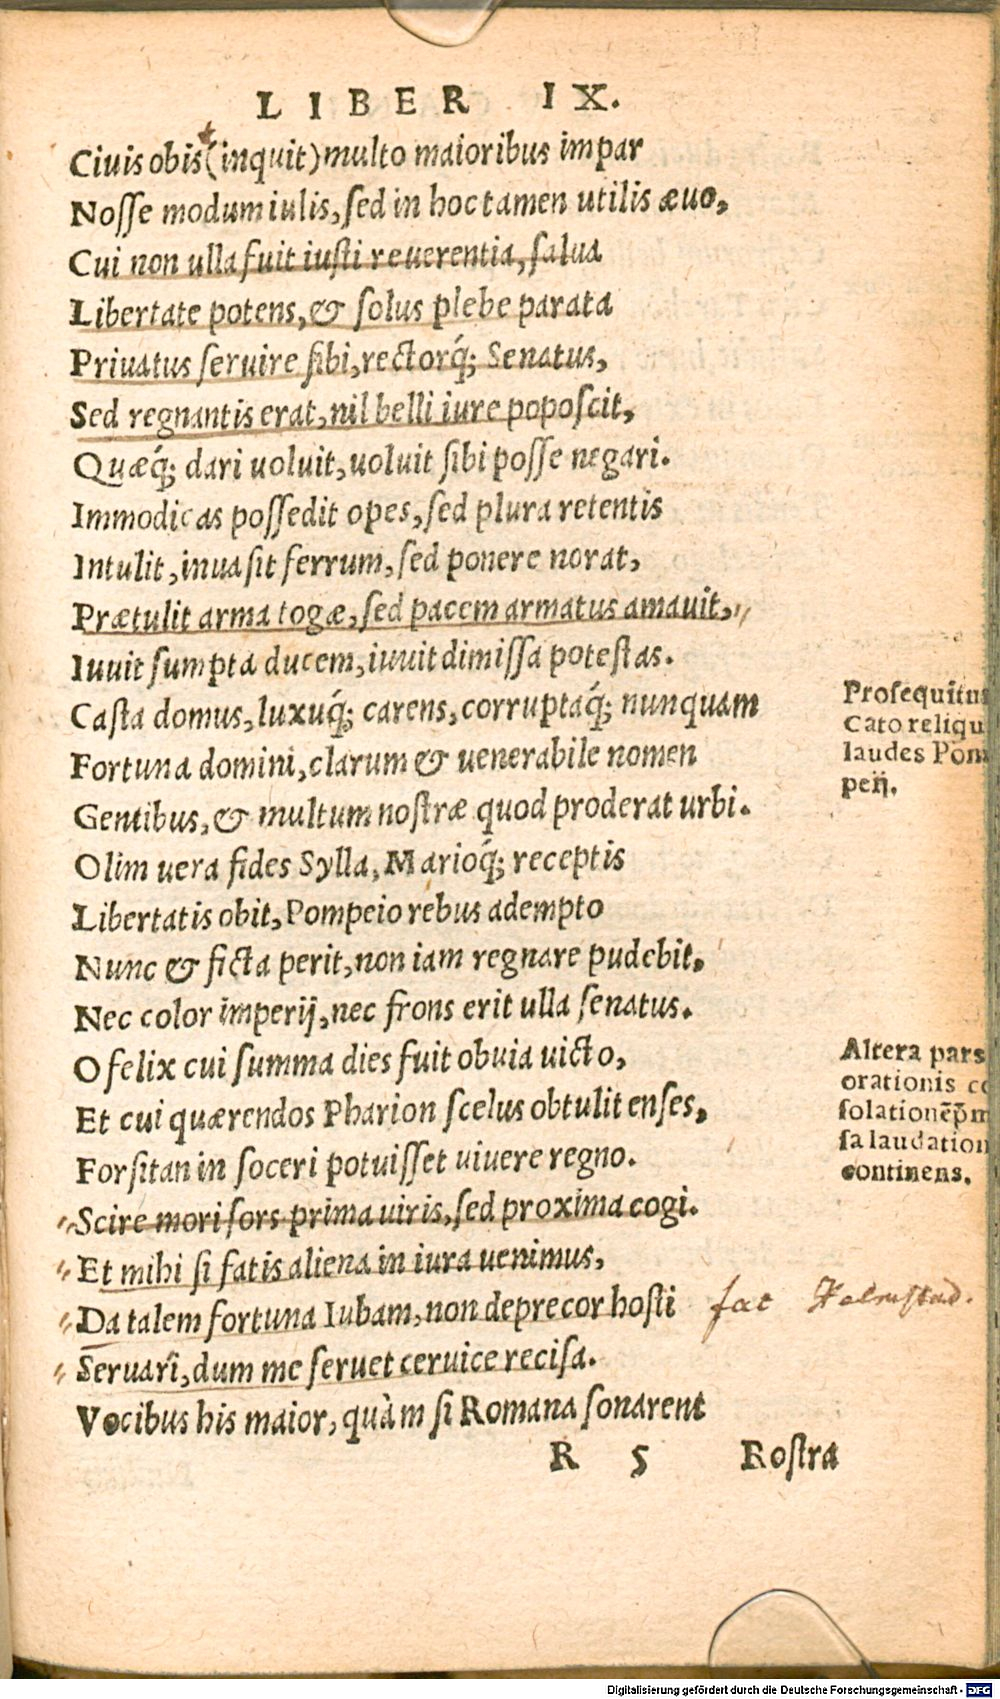 LIBER IX.
Ciuis obis (inquit) multo maioribus impar
Nosse modum iuIis, sed in hoc tamen utilis æuo,
Cui non ulla fuit iusti reuerentia, salua
Libertate potens, & solus plebe parata
Priuatus seruire sibi, rectorq́; Senatus,
Sed regnantis erat, nil belli iure poposcit,
Quæq́; dari uoluit, uoluit sibi posse negari.
Immodicas possedit opes, sed plura retentis
Intulit, inuasit ferrum, sed ponere norat,
Prætulit arma togæ, sed pacem armatus amauit,
Iuuit sumpta ducem, iuuit dimissa potestas.
Casta domus, luxuq́; carens, corruptaq́; nunquam
Fortuna domini, clarum & uenerabile nomen
Gentibus, & multum nostræ quod proderat urbi.
Olim uera fides Sylla, Marioq́; receptis
Libertatis obit, Pompeio rebus adempto
Nunc & ficta perit, non iam regnare pudebit,
Nec color imperij, nec frons erit ulla senatus.
O felix cui summa dies fuit obuia uicto,
Et cui quærendos Pharion scelus obtulit enses,
Forsitan in soceri potuisset uiuere regno.
Scire mori sors prima uiris, sed proxima cogi.
Et mihi si fatis aliena in iura uenimus,
Da talem fortuna Iubam, non deprecor hosti
Seruari, dum me seruet ceruice recisa.
Vocibus his maior, quàm si Romana sonarent
R 5 Rostra
Prosequitur
Cato reliqu
laudes Pom
peij.
Altera pars
orationis cō
solationē p̄m
sa laudation
continens.